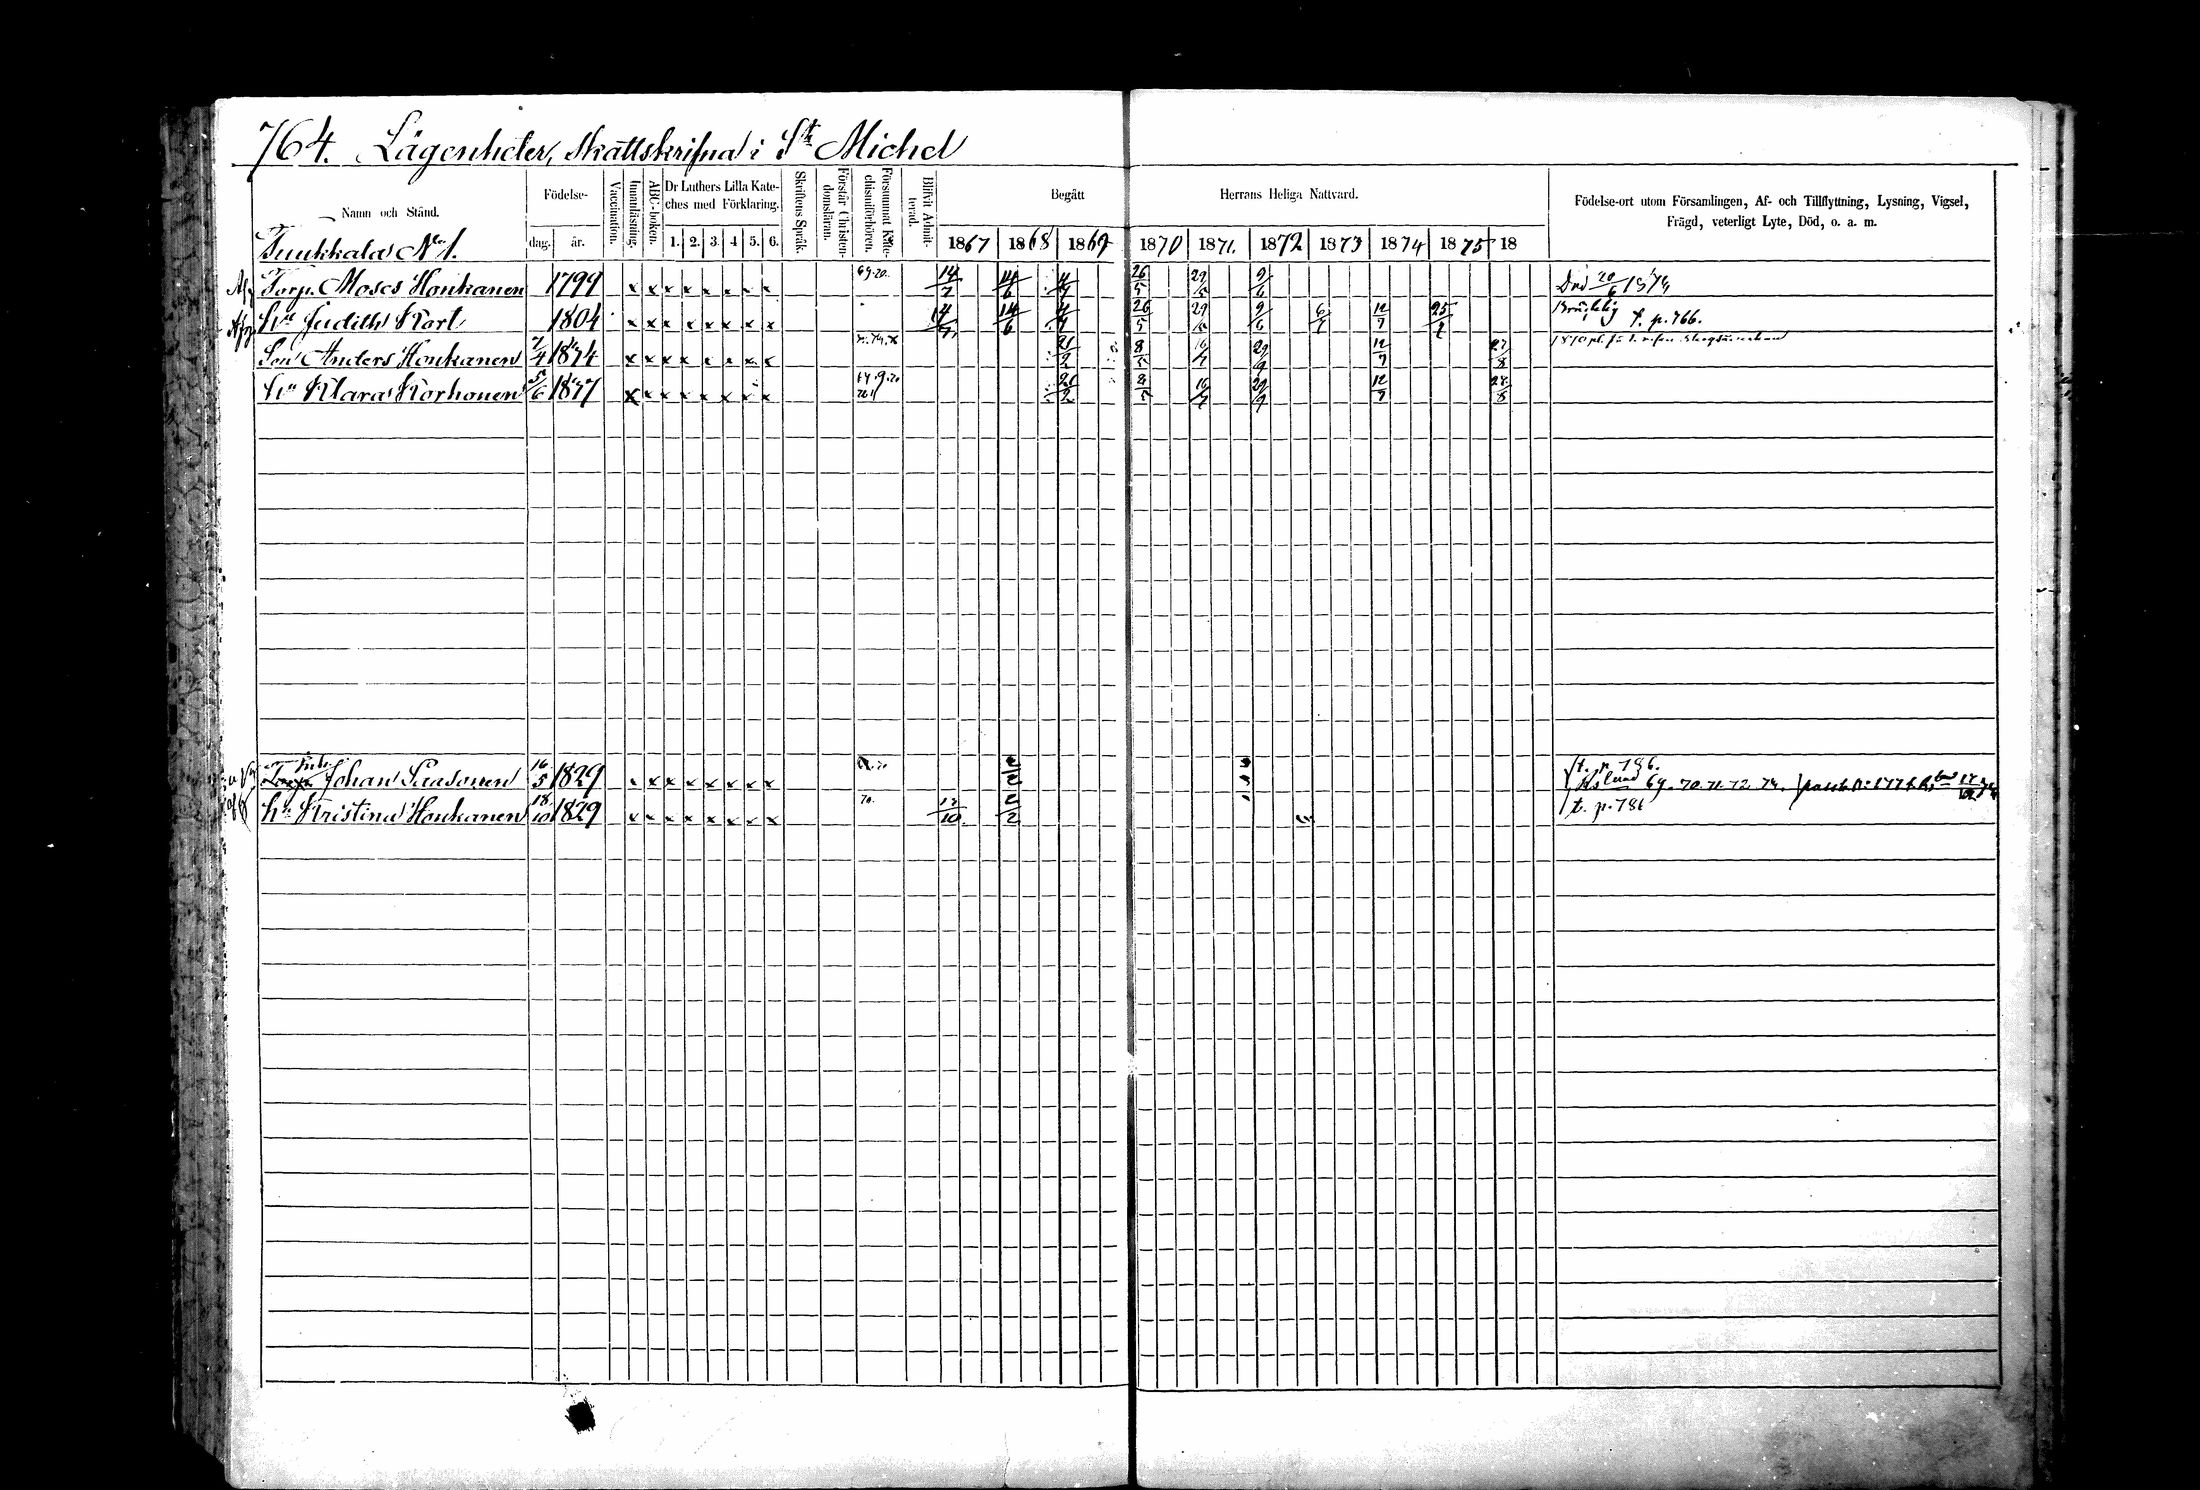 764. Lägenheter, skattskrifna i S:t Michel
Namn och Stånd.
Födelse-
dag.
år.
Vaccination.
Innanläsning.
ABC-boken.
Dr Luthers Lilla Kate-
ches med Förklaring.
1. 2. 3. 4 5. 6.
Skriftens Språk.
Förstår Christen-
domsläran.
Försummat Kate-
chismiförhören.
Blifvit Admit-
terad.
Begått Herrans Heliga Nattvard.
1867 1868 1869 1870 1871. 1872 1873 1874 1875 18
Födelse-ort utom Församlingen, Af- och Tillflyttning, Lysning, Vigsel,
Frägd, veterligt Lyte, Död, o. a. m.
Tuukkala No 1.
Torp. Moses Honkanen 1799 x x x x x x x x 69.70. 14/7 14/6 4/7 26/5 29/5 9/6 Död 20/6
Hu Judith Kort 1804 x x x x x x x x 14/7 14/6 4/7 26/5 29/5 9/6 6/7 12/7 25/7 Bräcklig t. p. 766.
Son Anders Honkanen 7/4 x x x x x x x x 21/2 8/5 16/7 29/9 12/7 27/8
Hu Klara Korhonen 5/6 x x x x x x x x 21/2 8/5 16/7 29/9 12/7 27/8
Inh. Johan Paasonen 16/5 1829 x x x x x x x x t. p. 786.
69. 70. 71. 72. 74.
Hu Kristina Honkanen 18/10 1829 x x x x x x x x 70. 12/10 2/2 t. p. 786